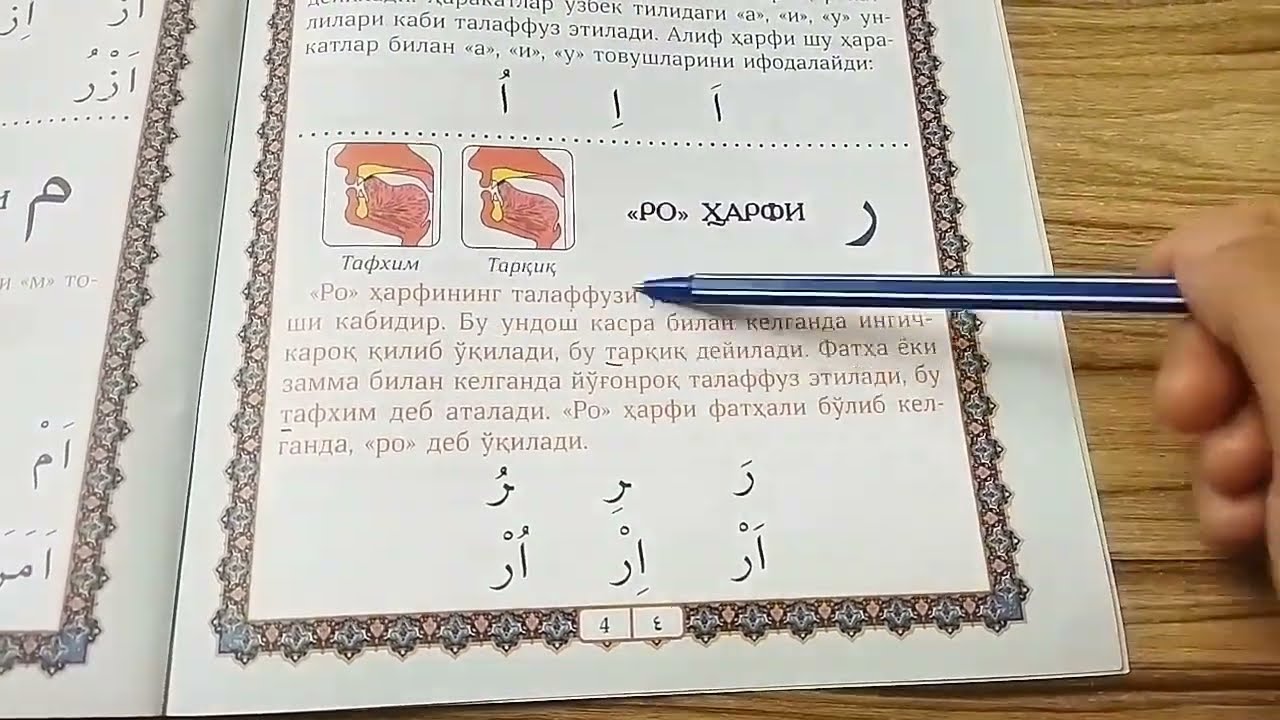 ҳаракатлар ўзбек тилидаги «а», «и», «у» ун-
лилари каби талаффуз этилади. Алиф ҳарфи шу ҳара-
катлар билан «а», «и», «у» товушларини ифодалайди:
اَ اِ اُ
«РО» ҲАРФИ ر
Тафхим Тарқиқ
«Ро» ҳарфининг талаффузи
ши кабидир. Бу ундош касра билан келганда ингич-
кароқ қилиб ўқилади, бу тарқиқ дейилади. Фатҳа ёки
замма билан келганда йўғонроқ талаффуз этилади, бу
тафхим деб аталади. «Ро» ҳарфи фатҳали бўлиб кел-
ганда, «ро» деб ўқилади.
رَ رِ رُ
اَرْ اِرْ اُرْ
4 ٤
اَزْرُ
م
и «м» то-
اَمْ